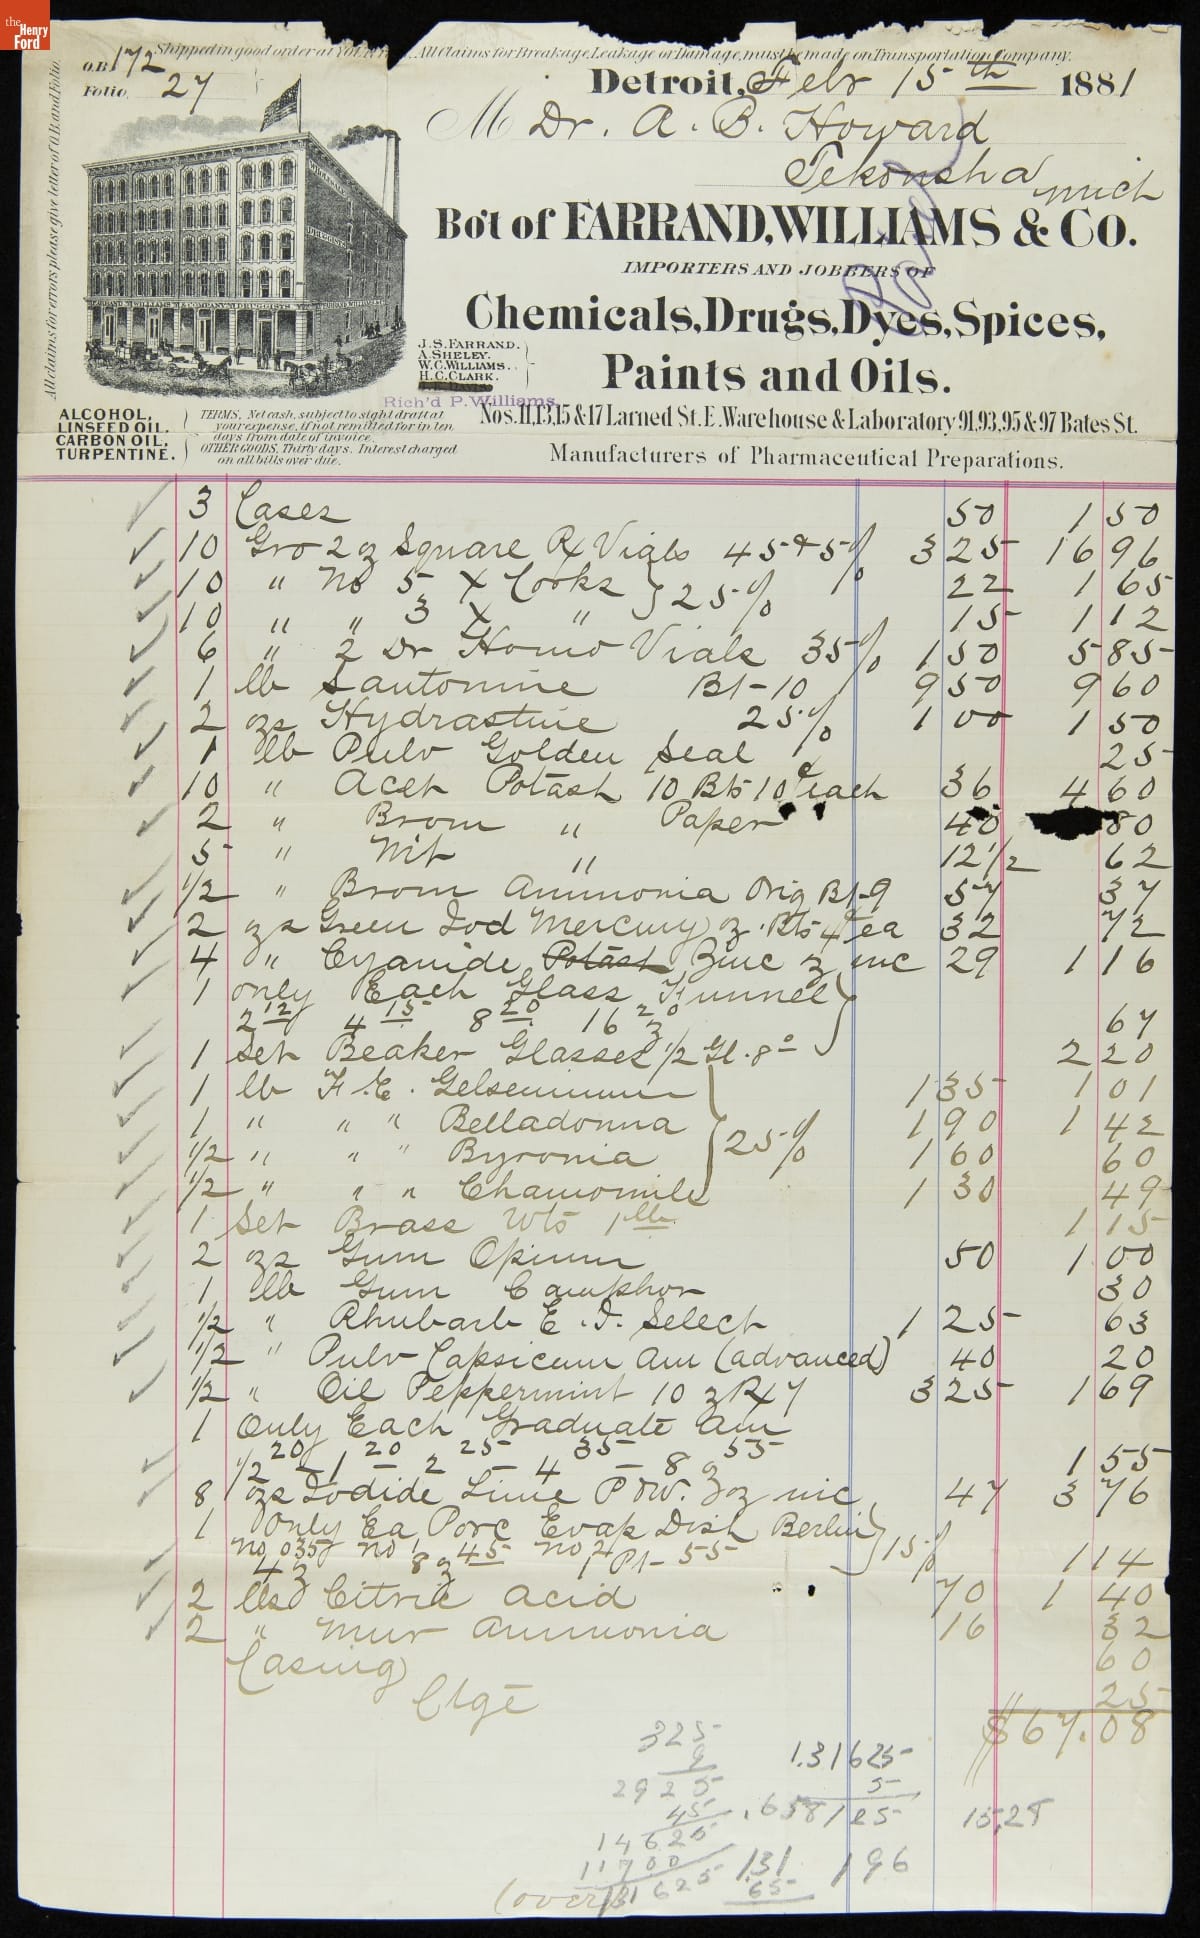 the Henry Ford
Shipped in good order at All Claims for Breakage, Leakage or Damage, must be made on Transportation Company.
O.B. 172
Folio. 27
All claims for errors please give letter of O.B. and Folio.
Detroit, Feb 15th 1881
M Dr. A. B. Howard
Tekonsha Mich
Bo't of FARRAND, WILLIAMS & CO.
IMPORTERS AND JOBBERS OF
Chemicals, Drugs, Dyes, Spices,
Paints and Oils.
J.S. FARRAND.
A. SHELEY.
W.C. WILLIAMS.
H.C. CLARK.
Rich'd P. Williams.
Nos. 11, 13, 15 & 17 Larned St. E. Warehouse & Laboratory 91, 93, 95 & 97 Bates St.
Manufacturers of Pharmaceutical Preparations.
ALCOHOL,
LINSEED OIL.
CARBON OIL,
TURPENTINE.
TERMS, Net cash, subject to sight draft at
your expense, if not remitted for in ten
days from date of invoice.
OTHER GOODS, Thirty days. Interest charged
on all bills over due.
3 Cases 50 1 50
10 Gro 2 oz Square Rx Vials 45 & 5% 3 25 16 96
10 " No 5 X Corks } 25% 22 1 65
10 " " 3 X " 15 1 12
6 " 2 Dr Homo Vials 35% 1 50 5 85
1 lb Santonine Bt-10 9 50 9 60
2 ozs Hydrastine 25% 1 00 1 50
1 lb Pulv Golden Seal 25
10 " Acet Potash 10 Bts 10¢ each 36 4 60
2 " Brom " Paper 40 80
5 " Nit " 12 1/2 62
1/2 " Brom Ammonia Orig Bt-9 57 37
2 ozs Green Iod Mercury oz. Bts 4¢ ea 32 72
4 " Cyanide Potash Zinc oz inc 29 1 16
1 only Each Glass Funnel
2 12 4 15 8 20 16 20 oz 67
1 Set Beaker Glasses 1/2 Gl. 8° 2 20
1 lb F.E. Gelseminum 1 35 1 01
1 " " " Belladonna 1 90 1 42
1/2 " " " Byronia 25% 1 60 60
1/2 " " " Chamomile 1 30 49
1 Set Brass Wts 1 lb 1 15
2 ozs Gum Opium 50 1 00
1 lb Gum Camphor 30
1/2 " Rhubarb E.I. Select 1 25 63
1/2 " Pulv Capsicum Am (advanced) 40 20
1/2 " Oil Peppermint 10 oz Rx 7 3 25 1 69
1 Only Each Graduate Am
1/2 20 1 20 2 25 4 35 8 oz 55 1 55
8 ozs Iodide Lime P & W. oz inc 47 3 76
1 Only Ea Porc Evap Dish Berlin } 15%
No 0 35 No 1 45 No 2 55
4 oz 8 oz 1 Pt 1 14
2 lbs Citric Acid 70 1 40
2 " Mur Ammonia 16 32
Casing 60
Ctge 25
$67.08
325
9
2925
45
14625
11700
131625
1.31625
5
.658125
15,28
131
65
196
(over)